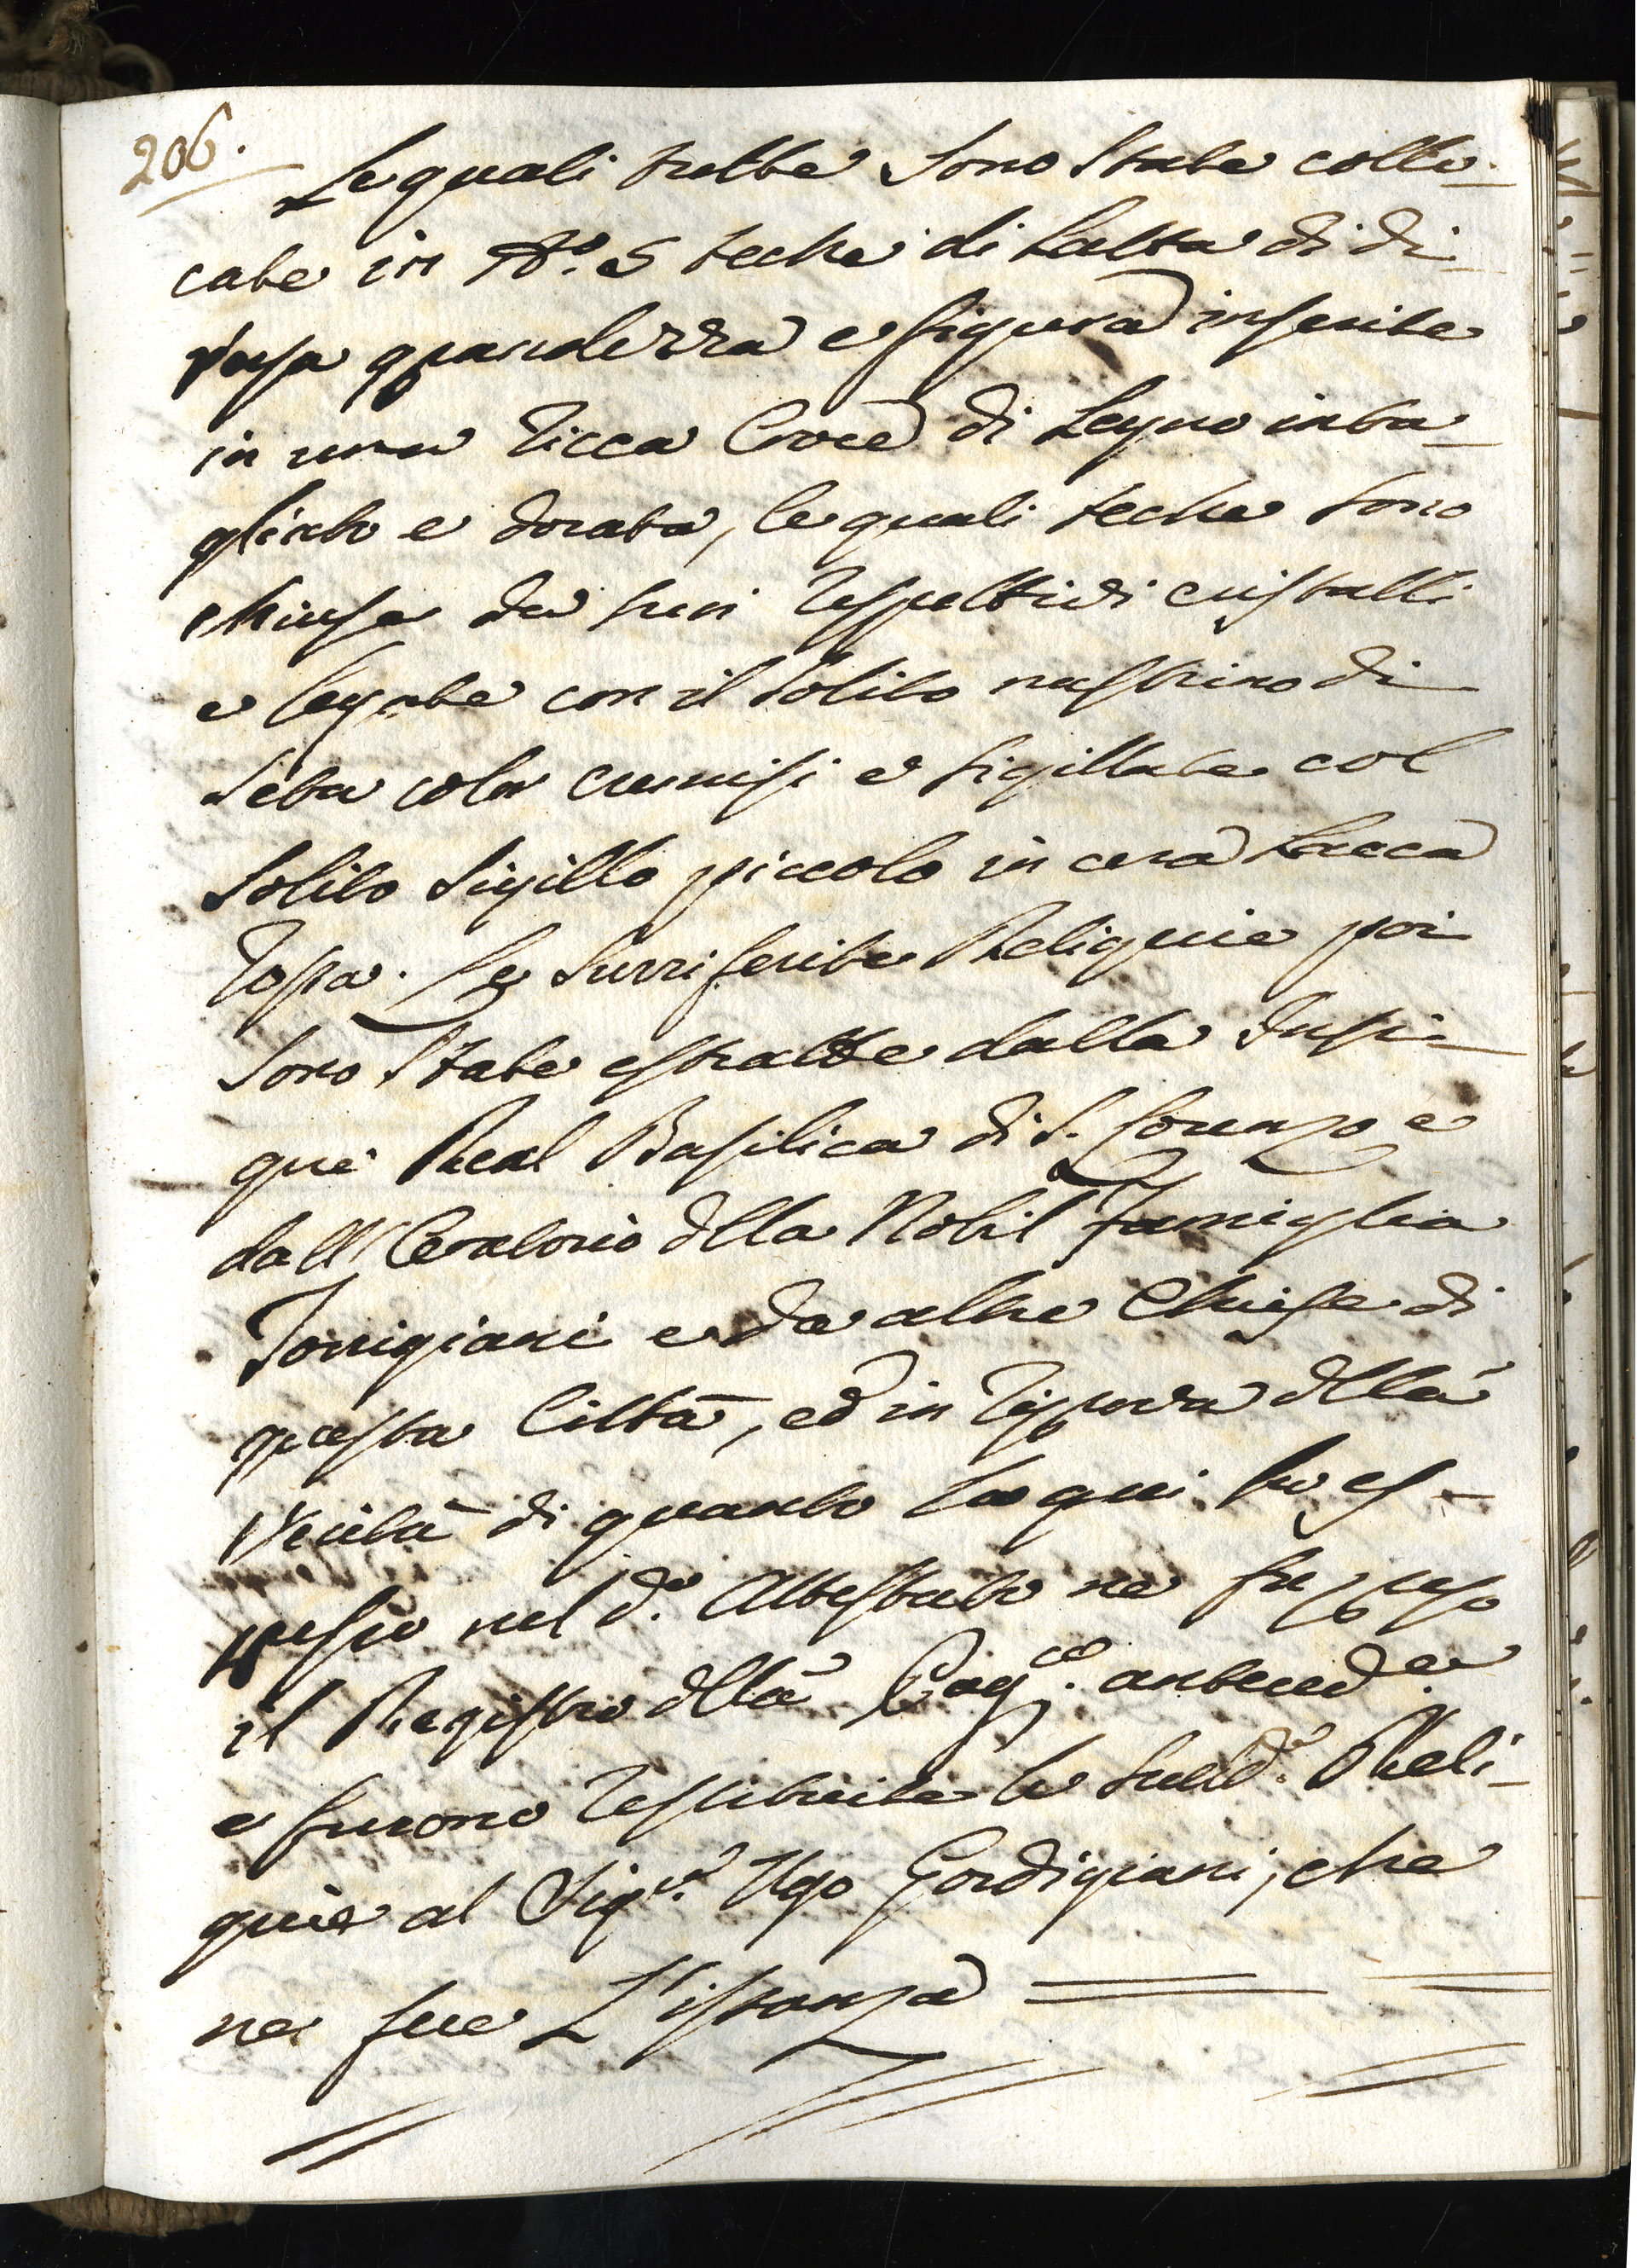 206.
Le quali tutte sono state collo-
cate in N.o 5 teche di latta di di-
versa grandezza e figura inserite
in una ricca Croce di Legno inta-
gliato e dorata, le quali teche sono
chiuse da suoi respettivi cristalli
e legate con il solito nastrino di
seta color cremisi e sigillate col
solito sigillo piccolo in cera lacca
rossa. Le surriferite Reliquie poi
sono state estratte dalla Insi-
gne Real Basilica di S. Lorenzo e
dall' Oratorio della Nobil Famiglia
Torrigiani e da altre Chiese di
questa Città, ed in riprova della
verità di quanto qui ho es-
presso nel d.o Attestato ne fu preso
il Registro della Pag.ce anteced.e
e furono restituite le sudd.e Reli-
quie al Sig.r Ugo Gordigiani, che
ne fece L'istanza